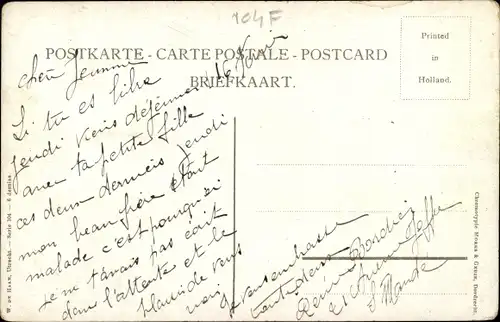 104F
POSTKARTE - CARTE POSTALE - POSTCARD
BRIEFKAART.
Printed
in
Holland.
16 
cher
Si tu es libre
jeudi viens déjeuner
avec ta petite fille
ces deux derniers jeudi
mon beau frère étant
malade c'est pourquoi
je ne t'avais pas écrit
dans l'attente et le
plaisir de vous
voir
je vous embrasse
tendrement
21 Avenue
St Mandé
W. de Haan, Utrecht. — Serie 104 — 6 dessins.
Chromotypie Mouan & Geuze, Dordrecht.